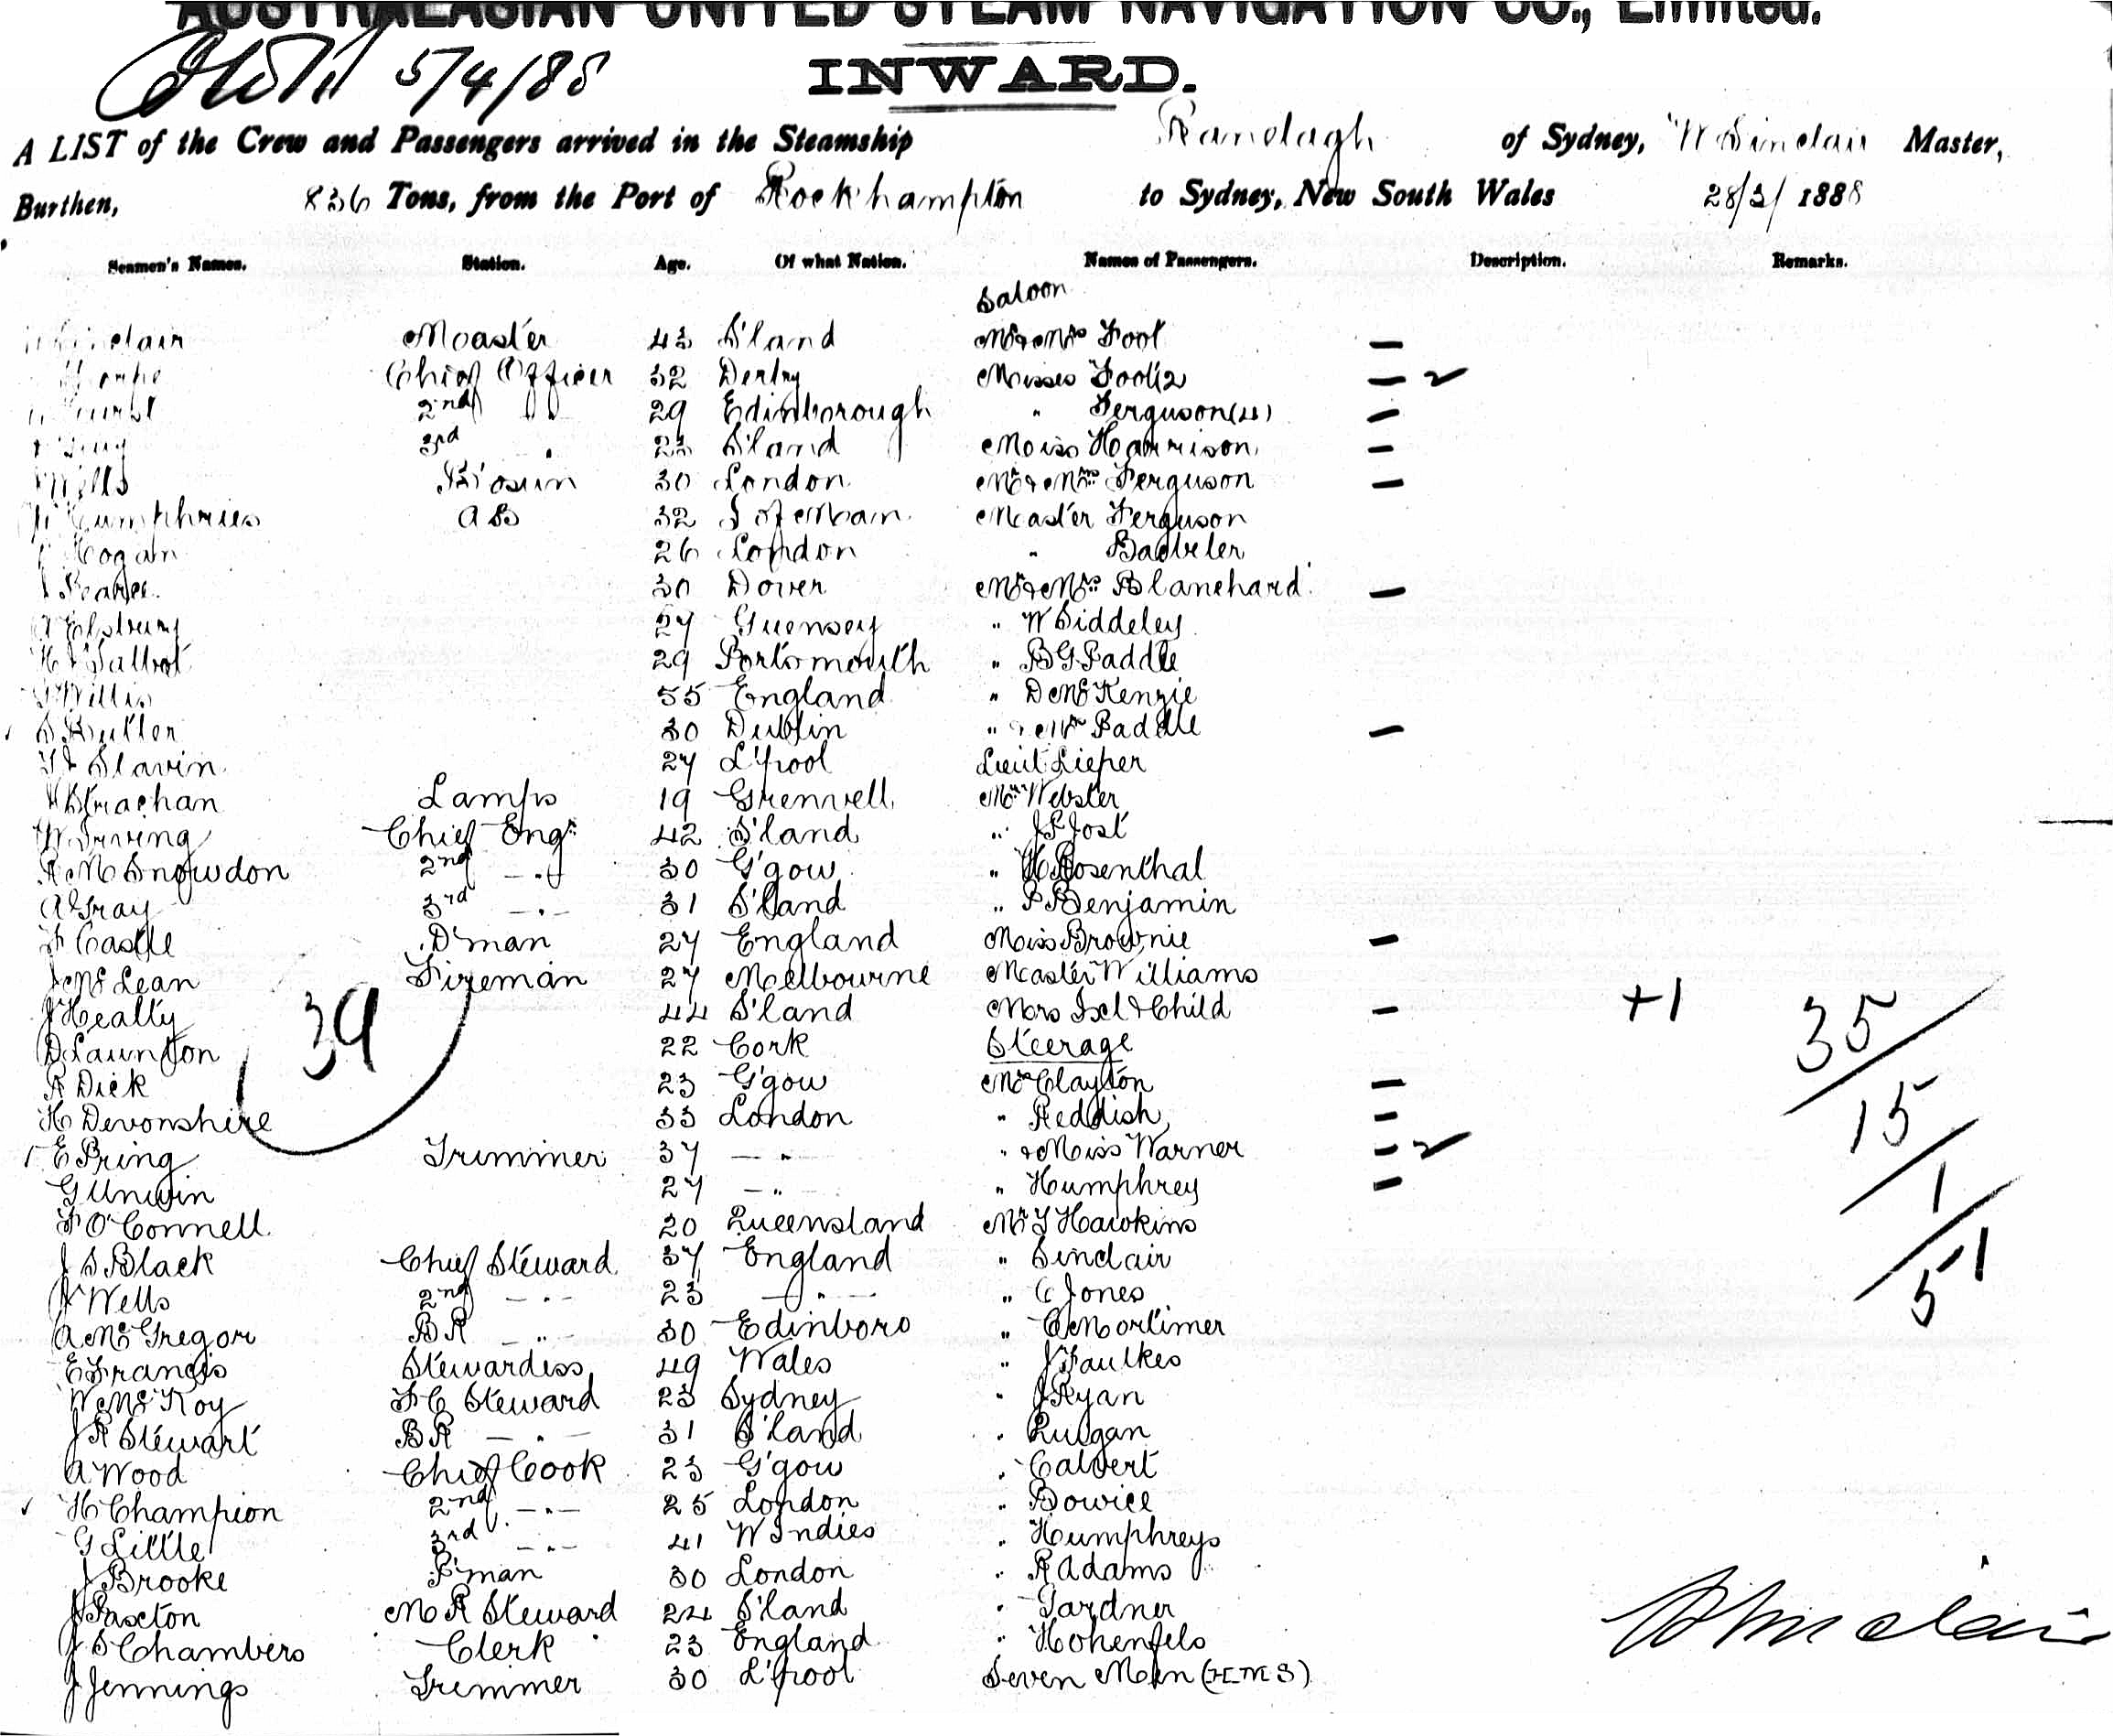 AUSTRALASIAN UNITED STEAM NAVIGATION CO., Limited.
5/4/88 INWARD.
A LIST of the Crew and Passengers arrived in the Steamship Ranelagh of Sydney, W Sinclair Master,
Burthen, 836 Tons, from the Port of Rockhampton to Sydney, New South Wales 28/3/1888
Seamen's Names. Station. Age. Of what Nation. Names of Passengers. Description. Remarks.
Saloon
Sinclair Master 43 S'land Mr & Mrs Foot —
Chief Officer 32 Derby Misses Foot (2 — 2
2nd " 29 Edinborough " Ferguson (4) —
3rd " 23 S'land Miss Harrison —
Wells Bosun 30 London Mr & Mrs Ferguson —
Humphries AB 32 I of Man Master Ferguson
Hogan 26 London "
30 Dover Mr & Mrs Blanchard —
27 Guensey " W Siddeley
H Talbot 29 Portsmouth " B G Paddle
Willis 55 England " D McKenzie
S Butler 30 Dublin " & Mrs Paddle —
Slavin 27 L'pool Lieut Lieper
Strachan Lamps 19 Mr Webster
W Irving Chief Engr 42 S'land " J P Jost
R M Snowdon 2nd — " 30 G'gow " H Rosenthal
A Gray 3rd — " — 31 S'land " P Benjamin
F Castle D'man 27 England Miss Brownie —
J McLean Fireman 27 Melbourne Master Williams
J Heally 44 S'land Mrs Ixel & Child — +1
39 35
D Launton 22 Cork Steerage
R Dick 23 G'gow Mrs Clayton —
H Devonshire 33 London " Reddish — 15
E Pring Trimmer 37 — " " & Miss Warner — 2
G Unwin 27 — " — " Humphrey — 1
F O'Connell 20 Queensland Mr T Hawkins
J S Black Chief Steward 37 England " Sinclair 51
J Wells 2nd — " — 23 — " — " C Jones
A McGregor BR — " — 30 Edinboro " C Mortimer
E Francis Stewardess 49 Wales " J Faulkes
W McKoy F C Steward 23 Sydney " J Ryan
J R Stewart BR — " — 31 S'land "
A Wood Chief Cook 23 G'gow " Calvert
H Champion 2nd — " — 25 London " Bowice
G Little 3rd — " — 41 W Indies " Humphreys
J Brooke P'man 30 London " R Adams
J Paxton M R Steward 24 S'land " Gardner
J S Chambers Clerk 23 England " Hohenfels
J Jennings Trimmer 30 L'pool Seven Men (H M S)
W Sinclair